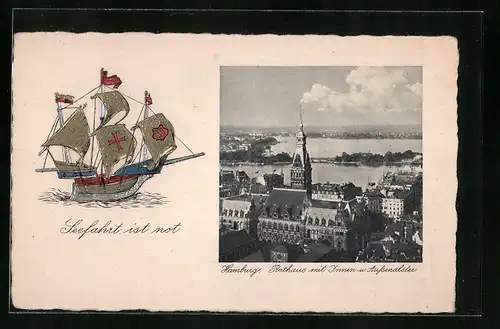 Seefahrt ist not
Hamburg. Rathaus mit Innen- u. Außenalster